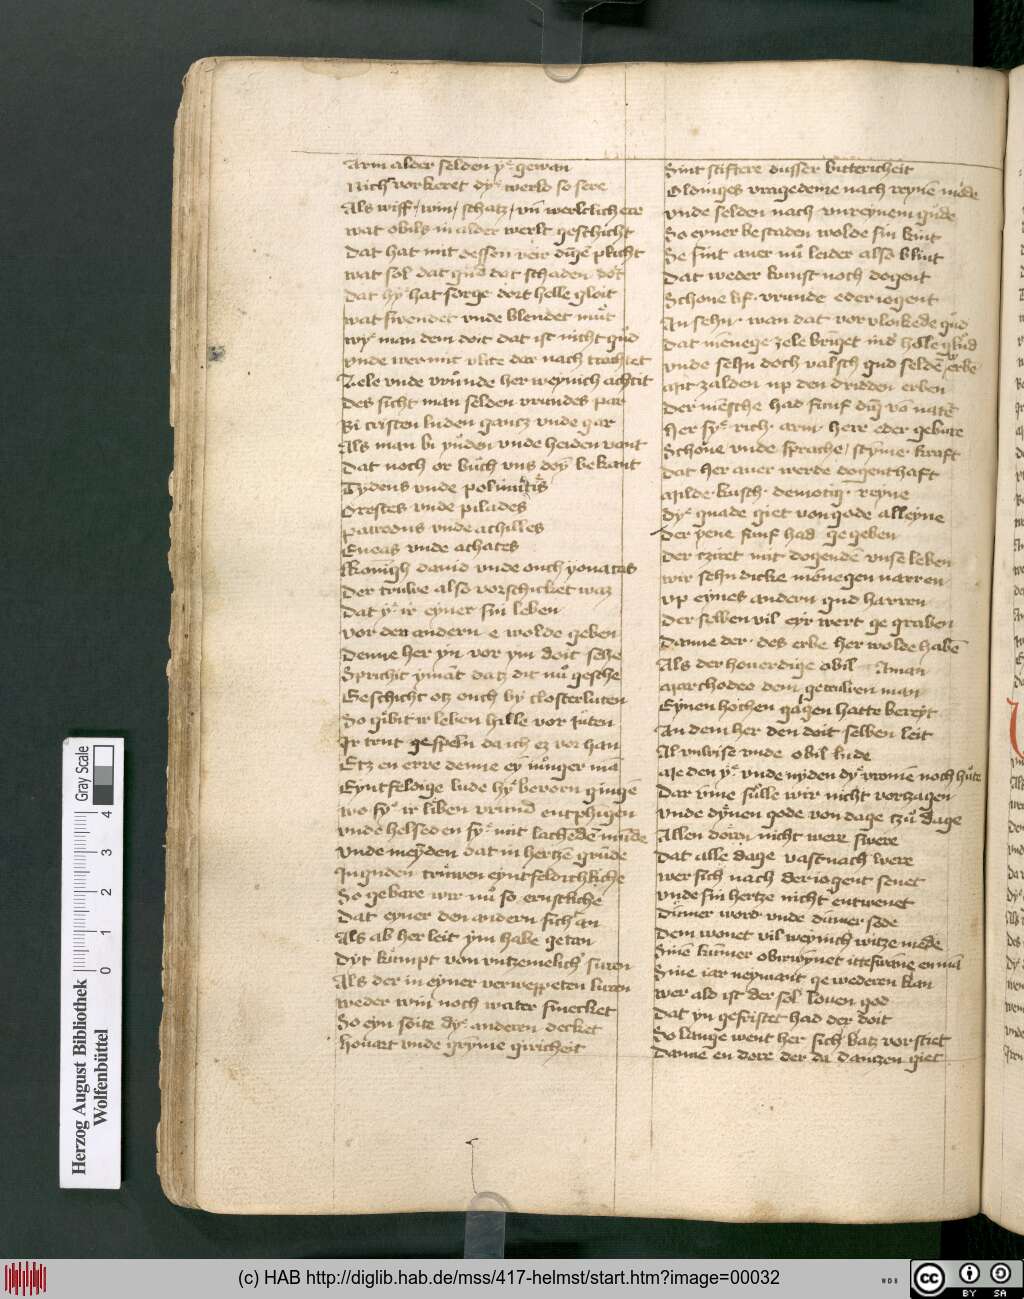 Arm alder selden yͤ gewan
Nicht vorkeret dyͤ werlt so sere
Als wiff / win / schatz / vn̄ werltlich ere
wat obils in alder werlt geschicht
Dat hat mit dessen veir dīgē plicht
wat sol dat gud dat schaden dot
Dat hyͤ hat sorge dort helle gloit
wat swendet vnde blendet muͦt
wyͤ man dem doit dat ist nicht guͦd
vnde wer mit vlite dar nach trachtet
Zele vnde vruͦnde her weynich achtit
Des sicht man selden vrundes par
Bi cristen luden gantz vnde gar
Als man bi yuͦden vnde heiden vant
Dat noch or buͦch vns doyͤ bekant
Tydeus vnde
Orestes vnde pilades
patrodus vnde achilles
Eneas vnde achates
Konigh dauid vnde ouch yonatas
Der truwe also vorschicket waz
Dat yͤ ir eyner sin leben
vor den andern e wolde geben
Denne her yn vor ym doit sehe
Spricht ymāt datz dit nuͦ geschehe
Geschicht otz ouch by closterluten
So gibit ir leben hulle vor luten
Ir trut gespeln da ich ez vor han
Etz en erre denne eyͤ iuͦnger mā
Eyntfeldige lude hyͤ bevorn gingē
wo syͤ ir liben vrund entphigen
vnde helsed en syͤ mit lachēdē mūde
vnde meydēn dat in hertzē grūde
In guden truwen eyntfeldichliche
So gebare wir nuͦ so ernstliche
Dat eyner den andern sicht an
Als ab her leit ym habe getan
Dyt kumpt von vntzemelich suren
Als der in eyner verweppeten luren
weder win noch water smecket
So eyn soite dyͤ anderen decket
houart vnde gryme giricheit
Sint stiftere dusser bittericheit
Oloniges vragedeme nach reynē mode
vnde selden nach vnreynem gude
So eyner bestaden wolde sin kint
Se sint auer nuͦ leider also blint
Dat weder kunst noch dogent
Schone lif · vrunde eder iogent
An sehn · wan dat vor vloikede guͦd
Dat mēnege zele brīget īnd helle gluͦd
vnde sehn doch valsch gud seldē erbē
zalden up den dridden erben
Der mēsche had fiinf dīg vō natē
Her syͤ rich · arm · herr eder gebure
Schoͤne vnde sprache / stȳme · kraft
Dat her auer werde dogenthaft
Milde · kusch · demotig · reyne
Dyͤ gnade giet von gode alleyne
Der yene fiinf had gegeben
Der tziret mit dogendē vnse leben
wir sehn dicke mōnegen narren
vp eynes andern gud harren
Der selben vil eyr wert ge graben
Danne der · des erbe her wolde habē
Als der houerdige obil Aman
Marchodeo dem getruwen man
Eynen hochen gagen hatte bereyt
An dem her den doit selben leit
Al vnwise vnde obil lude
Meden yͤ vnde myden dyͤ vromē noch huͤte
Dar vme suͦlle wir nicht vortzagen
vnde dyͤnen gode von dage tzuͦ dage
Allen doren nicht werr swere
Dat alle dage vastnach were
wer sich nach der iogent senet
vnde sin hertze nicht entwenet
Dumer word vnde dumer sede
Dem wonet vil weynich witze mede
Sinē kūmer obirwynet ittswane en mā
Sine iar neymant ge wederen kan
wer ald ist der sol louen god
Dat yn gefristet had der doit
So lange went her sich batz vorstiet
Danne en dore der da dantzen giet
Herzog August Bibliothek
Wolfenbüttel
0 1 2 3 4
Gray Scale
(c) HAB http://diglib.hab.de/mss/417-helmst/start.htm?image=00032
WDB
cc
BY SA